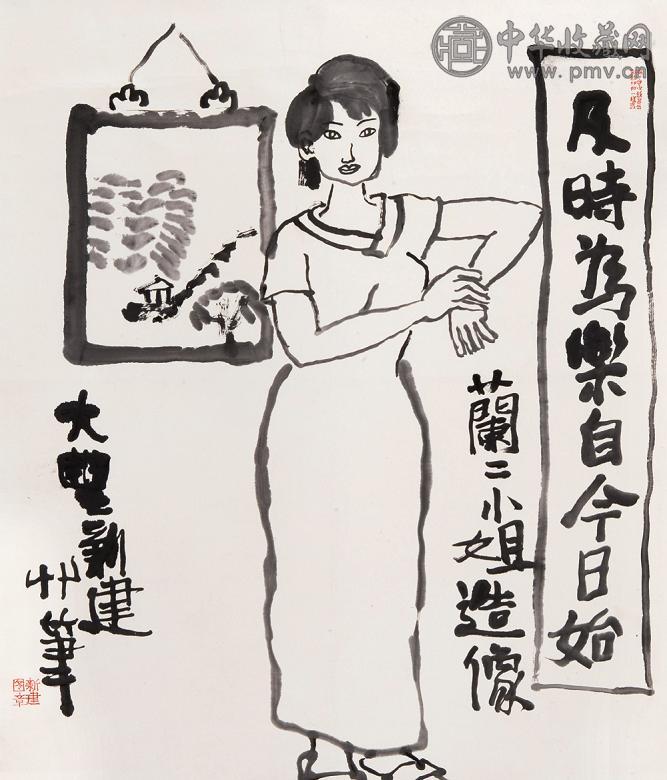 中华收藏网
www.pmv.cn
及時為樂自今日始
蘭二小姐造像
大豐新建
艸筆
新建
图章